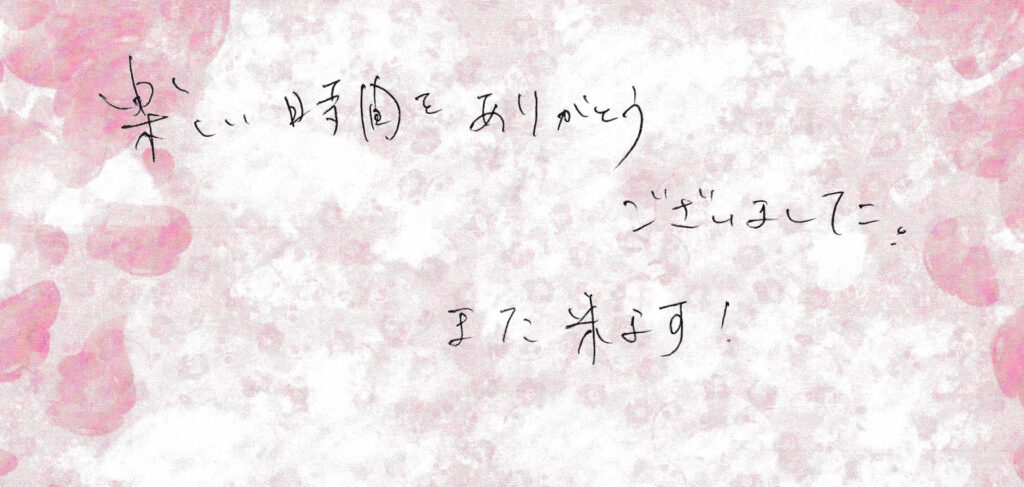 楽しい時間をありがとう
ございました。
また来ます！